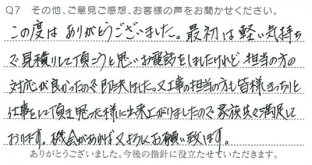 Q7 その他、ご意見ご感想、お客様の声をお聞かせください。
この度は ありがとうございました。最初は軽い気持ち
で見積りして頂こうと思いお電話をしましたけど、担当の方の
対応が良かったので即決でした。又工事の担当の方も皆様きっちりと
仕事をして頂き思った様に出来上がりましたので家族共々満足して
おります。機会があれば又よろしくお願い致します。
ありがとうございました。今後の指針に役立たせていただきます。